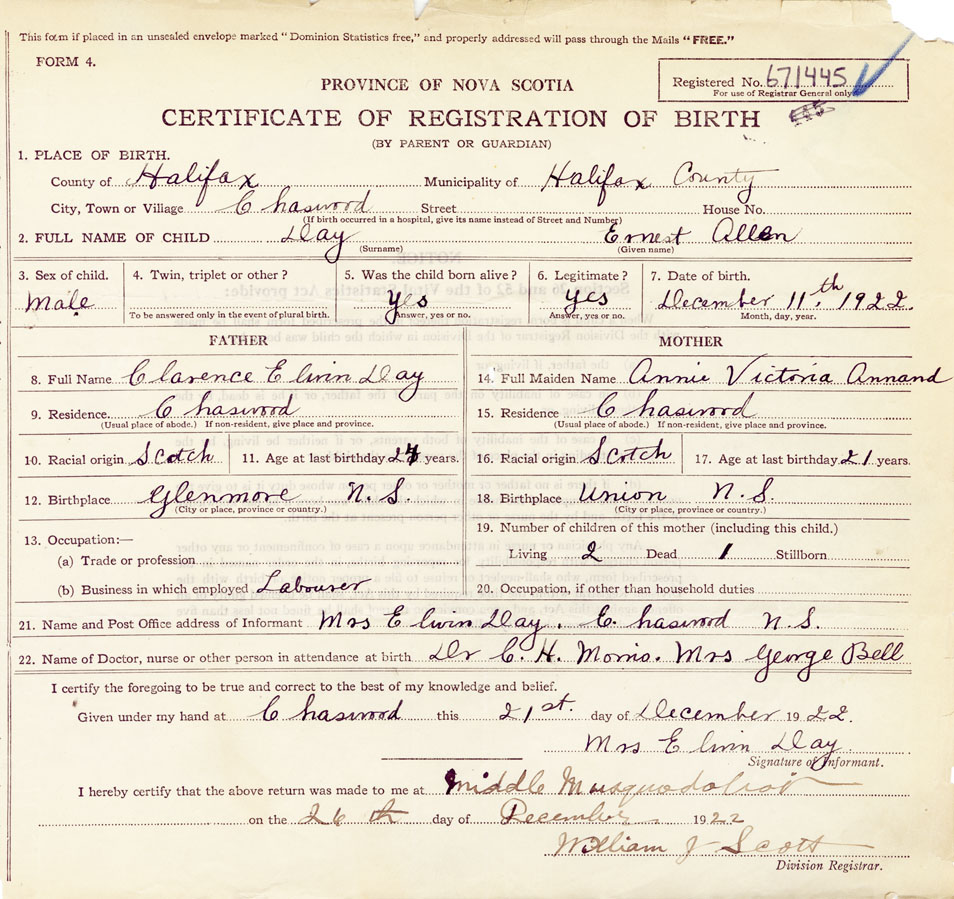 This form if placed in an unsealed envelope marked "Dominion Statistics free," and properly addressed will pass through the Mails "FREE."
FORM 4.
Registered No. 671445
For use of Registrar General only
PROVINCE OF NOVA SCOTIA
CERTIFICATE OF REGISTRATION OF BIRTH
(BY PARENT OR GUARDIAN)
1. PLACE OF BIRTH.
County of Halifax Municipality of Halifax County
City, Town or Village Chaswood Street House No.
(If birth occurred in a hospital, give its name instead of Street and Number)
2. FULL NAME OF CHILD Day Ernest Allen
(Surname) (Given name)
3. Sex of child. 4. Twin, triplet or other? 5. Was the child born alive? 6. Legitimate? 7. Date of birth.
Male Yes Yes December 11th, 1922.
To be answered only in the event of plural birth. Answer, yes or no. Answer, yes or no. Month, day, year.
FATHER MOTHER
8. Full Name Clarence Elwin Day 14. Full Maiden Name Annie Victoria Annand
9. Residence Chaswood 15. Residence Chaswood
(Usual place of abode.) If non-resident, give place and province. (Usual place of abode.) If non-resident, give place and province.
10. Racial origin Scotch 11. Age at last birthday years. 16. Racial origin Scotch 17. Age at last birthday 21 years.
12. Birthplace Glenmore N.S. 18. Birthplace Union N.S.
(City or place, province or country.) (City or place, province or country.)
19. Number of children of this mother (including this child.)
13. Occupation:—
Living 2 Dead 1 Stillborn
(a) Trade or profession
(b) Business in which employed Labourer 20. Occupation, if other than household duties
21. Name and Post Office address of Informant Mrs Elwin Day. Chaswood N.S.
22. Name of Doctor, nurse or other person in attendance at birth Dr C. H. Morris. Mrs George Bell
I certify the foregoing to be true and correct to the best of my knowledge and belief.
Given under my hand at Chaswood this 21st. day of December 1922.
Mrs Elwin Day.
Signature of Informant.
I hereby certify that the above return was made to me at Middle Musquodoboit
on the 26th day of December 1922
William J Scott
Division Registrar.